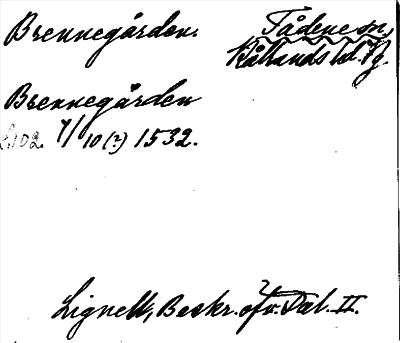 Brennegården. Tådene sn,
Kållands hd. Vg.
Brennegården
7/10 (?) 1532.
Lignell, Beskr. öfv. Dal. II.